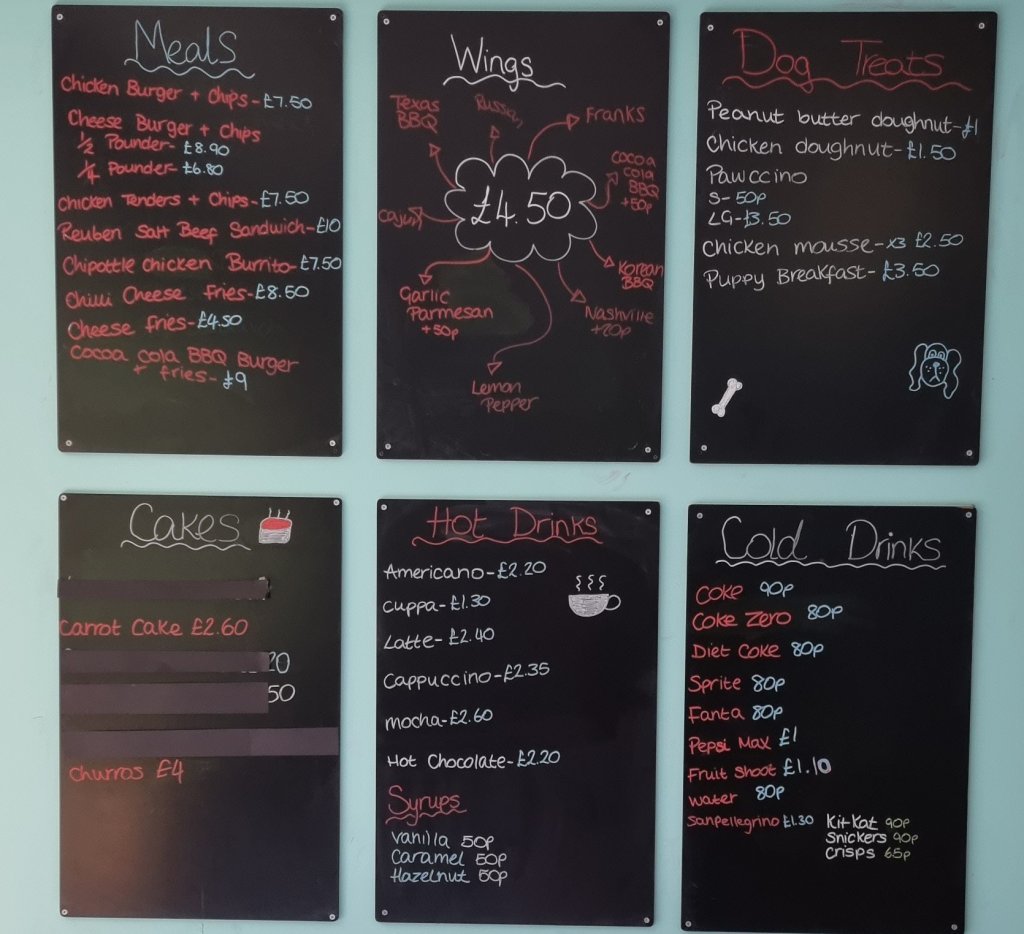 Meals
Chicken Burger + Chips-£7.50
Cheese Burger + Chips
1/2 Pounder- £8.90
1/4 Pounder- £6.80
Chicken Tenders + Chips-£7.50
Reuben Salt Beef Sandwich-£10
Chipottle chicken Burrito-£7.50
Chilli Cheese Fries-£8.50
Cheese fries-£4.50
Cocoa cola BBQ Burger
+ fries- £9
Wings
Texas
BBQ
Russian
Franks
Cocoa
Cola
BBQ
+50p
£4.50
Cajun
Korean
BBQ
Garlic
Parmesan
+50p
Nashville
+20p
Lemon
Pepper
Dog Treats
Peanut butter doughnut-£1
Chicken doughnut-£1.50
Pawccino
S- 50p
LG-£3.50
Chicken mousse-x3 £2.50
Puppy Breakfast- £3.50
Cakes
Carrot Cake £2.60
20
50
Churros £4
Hot Drinks
Americano-£2.20
Cuppa-£1.30
Latte- £2.40
Cappuccino-£2.35
mocha-£2.60
Hot Chocolate-£2.20
Syrups
Vanilla 50p
Caramel 50p
Hazelnut 50p
Cold Drinks
Coke 90p
Coke Zero 80p
Diet Coke 80p
Sprite 80p
Fanta 80p
Pepsi Max £1
Fruit Shoot £1.10
Water 80p
Sanpellegrino £1.30
Kit-Kat 90p
Snickers 90p
Crisps 65p